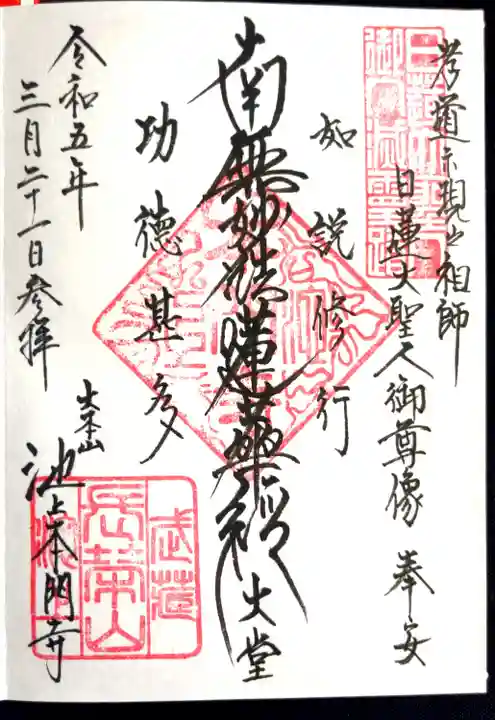 孝道示現之祖師
日蓮大聖人御尊像 奉安
如説修行
南無妙法蓮華経
大堂
功徳甚多
令和五年
三月二十一日参拝
大本山
池上本門寺
武蔵
長栄山
池上